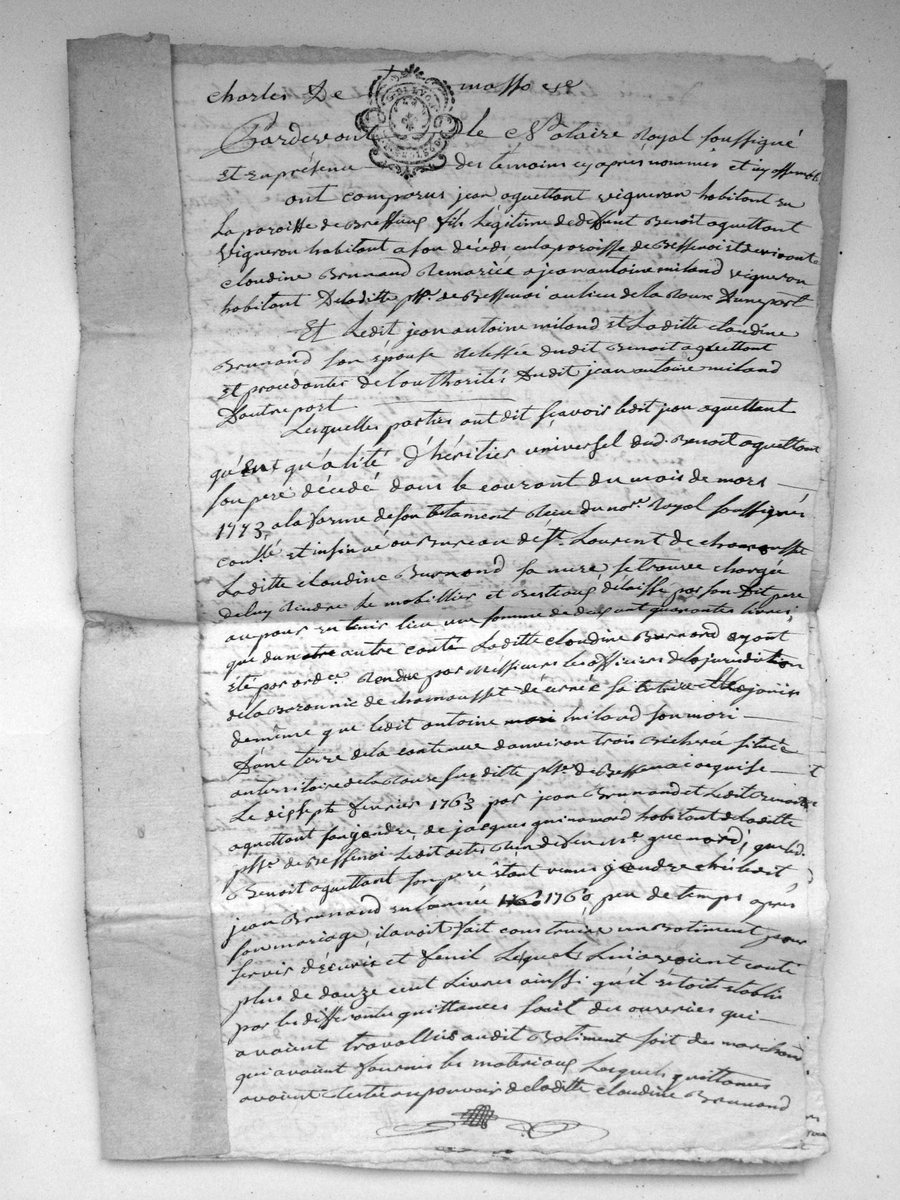 charles De masso
Pardevant le Notaire Royal soussigné
et en présence des temoins cy apres nommés
ont comparus jean aquettant vigneron habitant en
La paroisse de Bessenai fils Légitime de deffunt Benoit aquettant
vigneron habitant a son décéds en la paroisse de Bessenai et de vivante
claudine Brunand Remariée a jean antoine milaud vigneron
habitant De laditte psse. de Bessenai au lieu de la Roux D'une part
Et Ledit jean antoine milaud et Laditte claudine
Brunand son épouse délessée dudit Benoit aquettant
et procédantes de l'authorités Dudit jean antoine milaud
D'autre part
Lesquelles parties ont dit sçavoir ledit jean aquettant
qu'en qualité d'héritier universel dud. Benoit aquettant
son pere décédé dans le courant du mois de mars
1773, a la forme de son testament Reçu du nore. Royal soussignés
conllé et insinué au Bureau de st. Laurent de chamousset
Laditte claudine Burnand sa mere se trouve chargée
de luy Rendre le mobillier et Bestiaux délaissé par son dit pere
ou pour en tenir lieu une somme de deux cent quarante livres,
que du notre autre couté Laditte claudine Burnard ayant
été par ordce. Rendue par Messieurs les officiers de la juridiction
de la Baronnie de chamousset
de même que ledit antoine milaud son mari
D'une terre de la contenue d'environ trois Bicherée située
au territoire de la Roure susditte psse. de Bessenai acquise
Le dix sept fevrier 1763 par jean Brunand et Ledit Benoit
aquettant son gendre, de jacques guinamand habitant de laditte
psse. de Bessenai Ledit acte Reçu de deffunt Me. guenard, que led.
Benoit aquettant son pere étant venus gendre chés ledit
jean Brunand en l'année 1760, peu de temps après
son mariage, il avoit fait construire un Batiment pour
servir d'écurie et fenil Lequel lui avoient couté
plus de douze cent Livres ainssi qu'il étoit établis
par les differentes quittances soit des ouvriers qui
avaient travallies audit Batiment soit des marchand
qui avaient fournis les materiaux Lesquels quittances
avaient Restée au pouvoir de laditte claudine Brunand